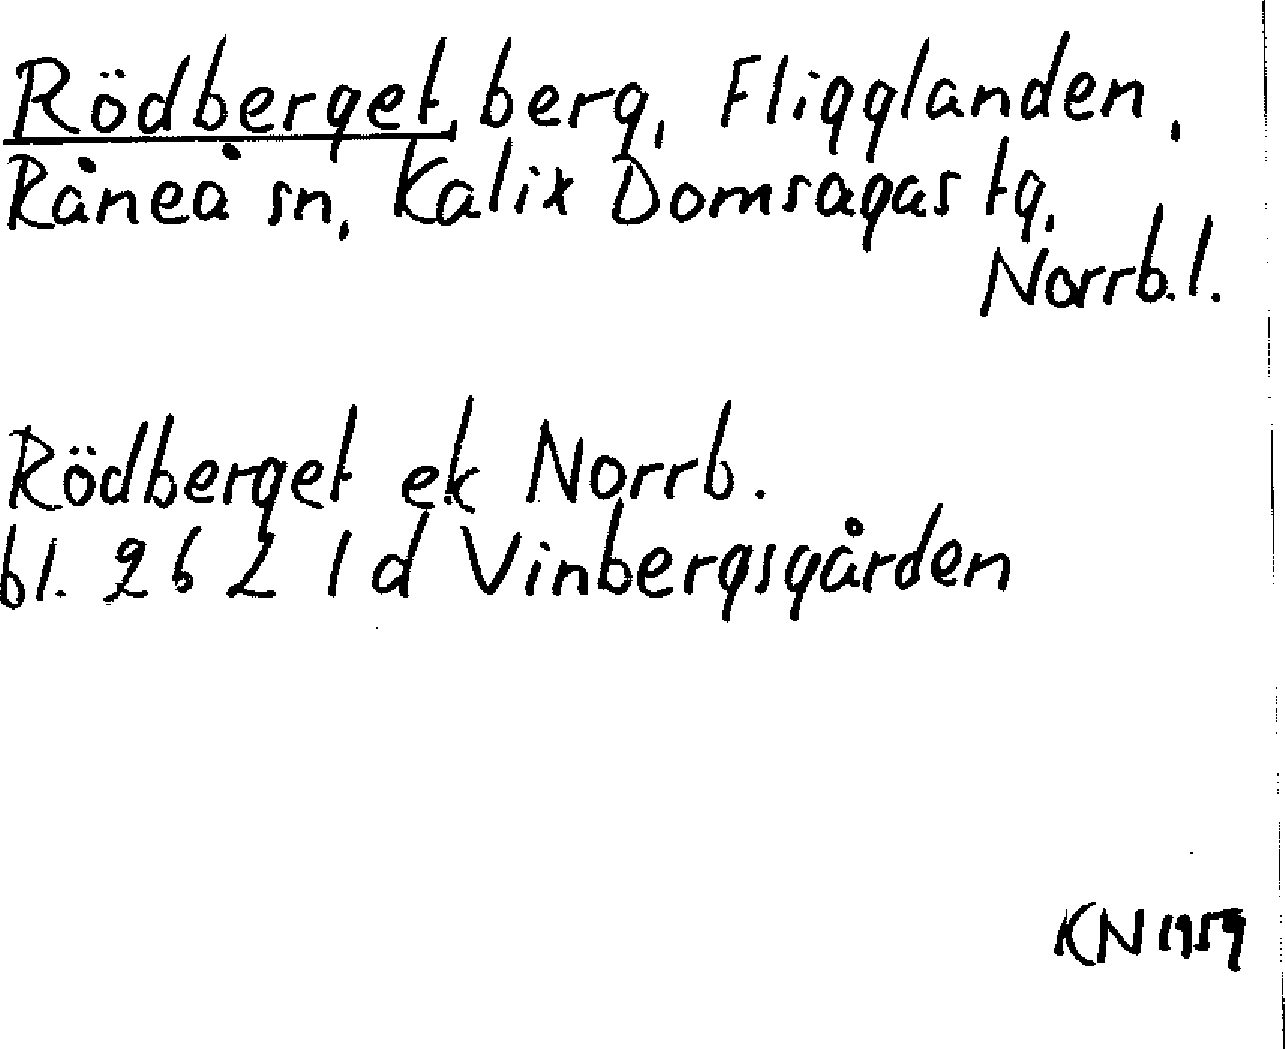 Rödberget, berg, Fligglanden,
Råneå sn, Kalix Domsagas tg,
Norrb. l.
Rödberget ek Norrb.
bl. 26 Z 1 d Vinbergsgården
KN 1959